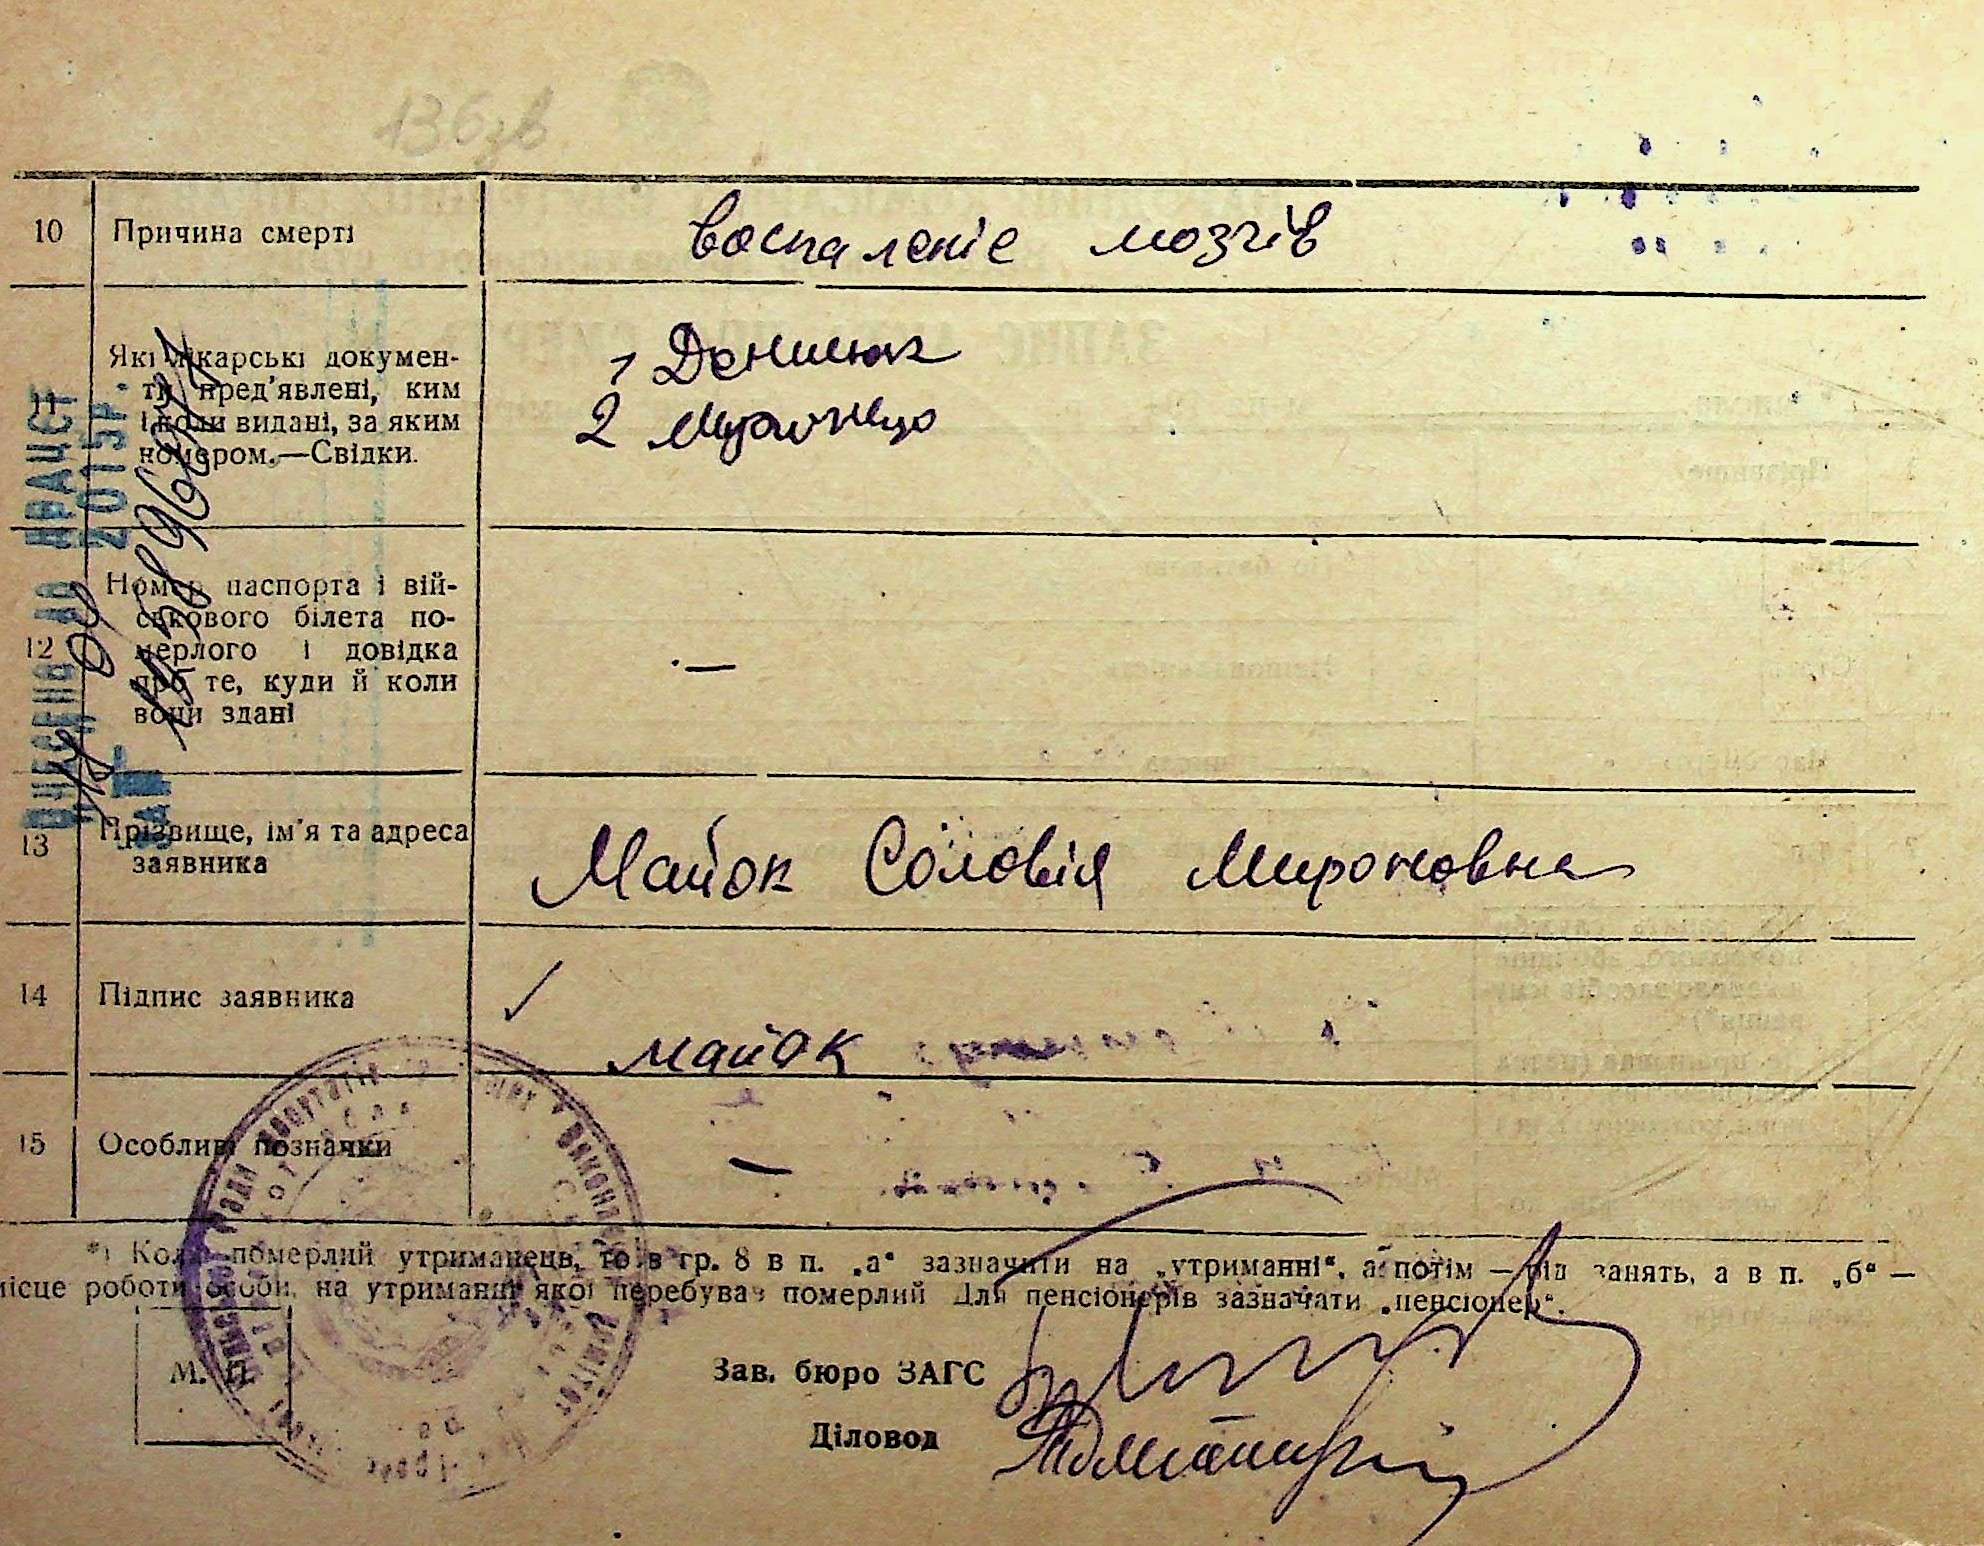 136зв
10 Причина смерті воспаленіе мозгів
Які лікарські докумен-
ти пред'явлені, ким
і коли видані, за яким
номером.—Свідки.
1 Денисюк
2
12 Номер паспорта і вій-
ськового білета по-
мерлого і довідка
про те, куди й коли
вони здані
—
13 Прізвище, ім'я та адреса
заявника
Майок Соловія Мироновна
14 Підпис заявника
майок
15 Особливі позначки —
*) Коли померлий утриманець, то в гр. 8 в п. „а“ зазначити на „утриманні“, а потім — рід занять, а в п. „б“ —
місце роботи особи, на утриманні якої перебував померлий Для пенсіонерів зазначати „пенсіонер“.
М. П.
Зав. бюро ЗАГС
Діловод
ВНЕСЕНО ДО ДРАЦСГ
2015р.